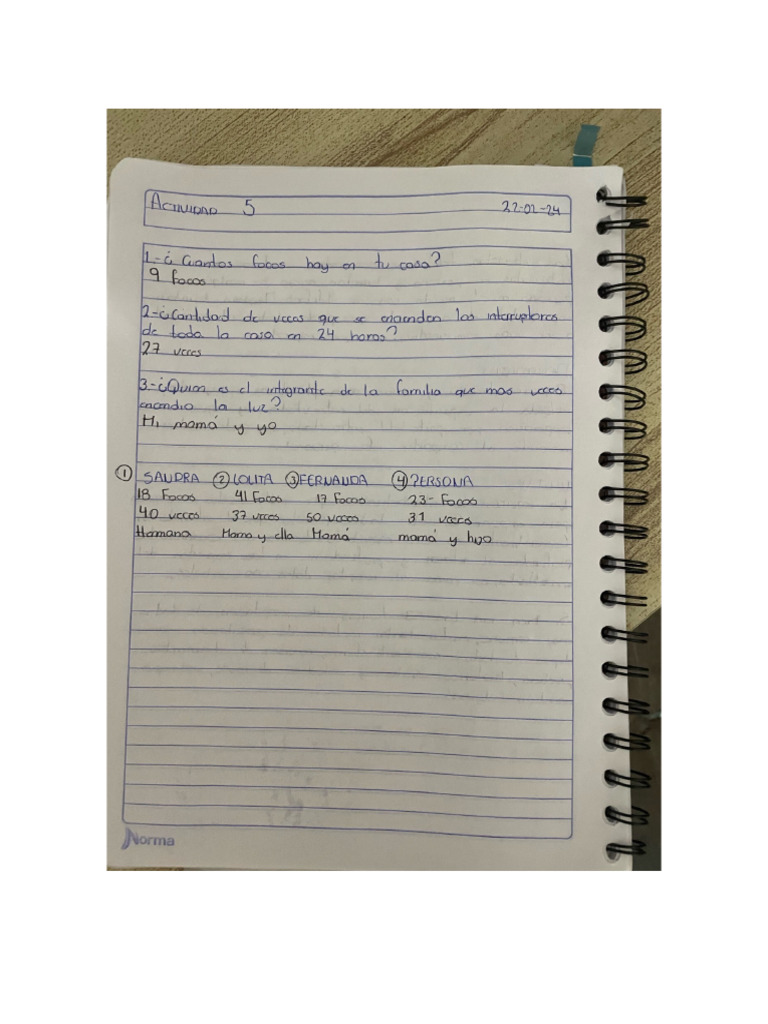 ACTIVIDAD 5 22-02-24
1-¿Cuantos focos hay en tu casa?
9 focos
2-¿Cantidad de veces que se encienden los interruptores
de toda la casa en 24 horas?
27 veces
3-¿Quien es el integrante de la familia que mas veces
encendio la luz?
Mi mamá y yo
① SANDRA ② LOLITA ③ FERNANDA ④ PERSONA
18 Focos 41 Focos 17 Focos 23- Focos
40 veces 37 veces 50 veces 31 veces
Hermano Mama y ella Mamá mamá y hijo
Norma